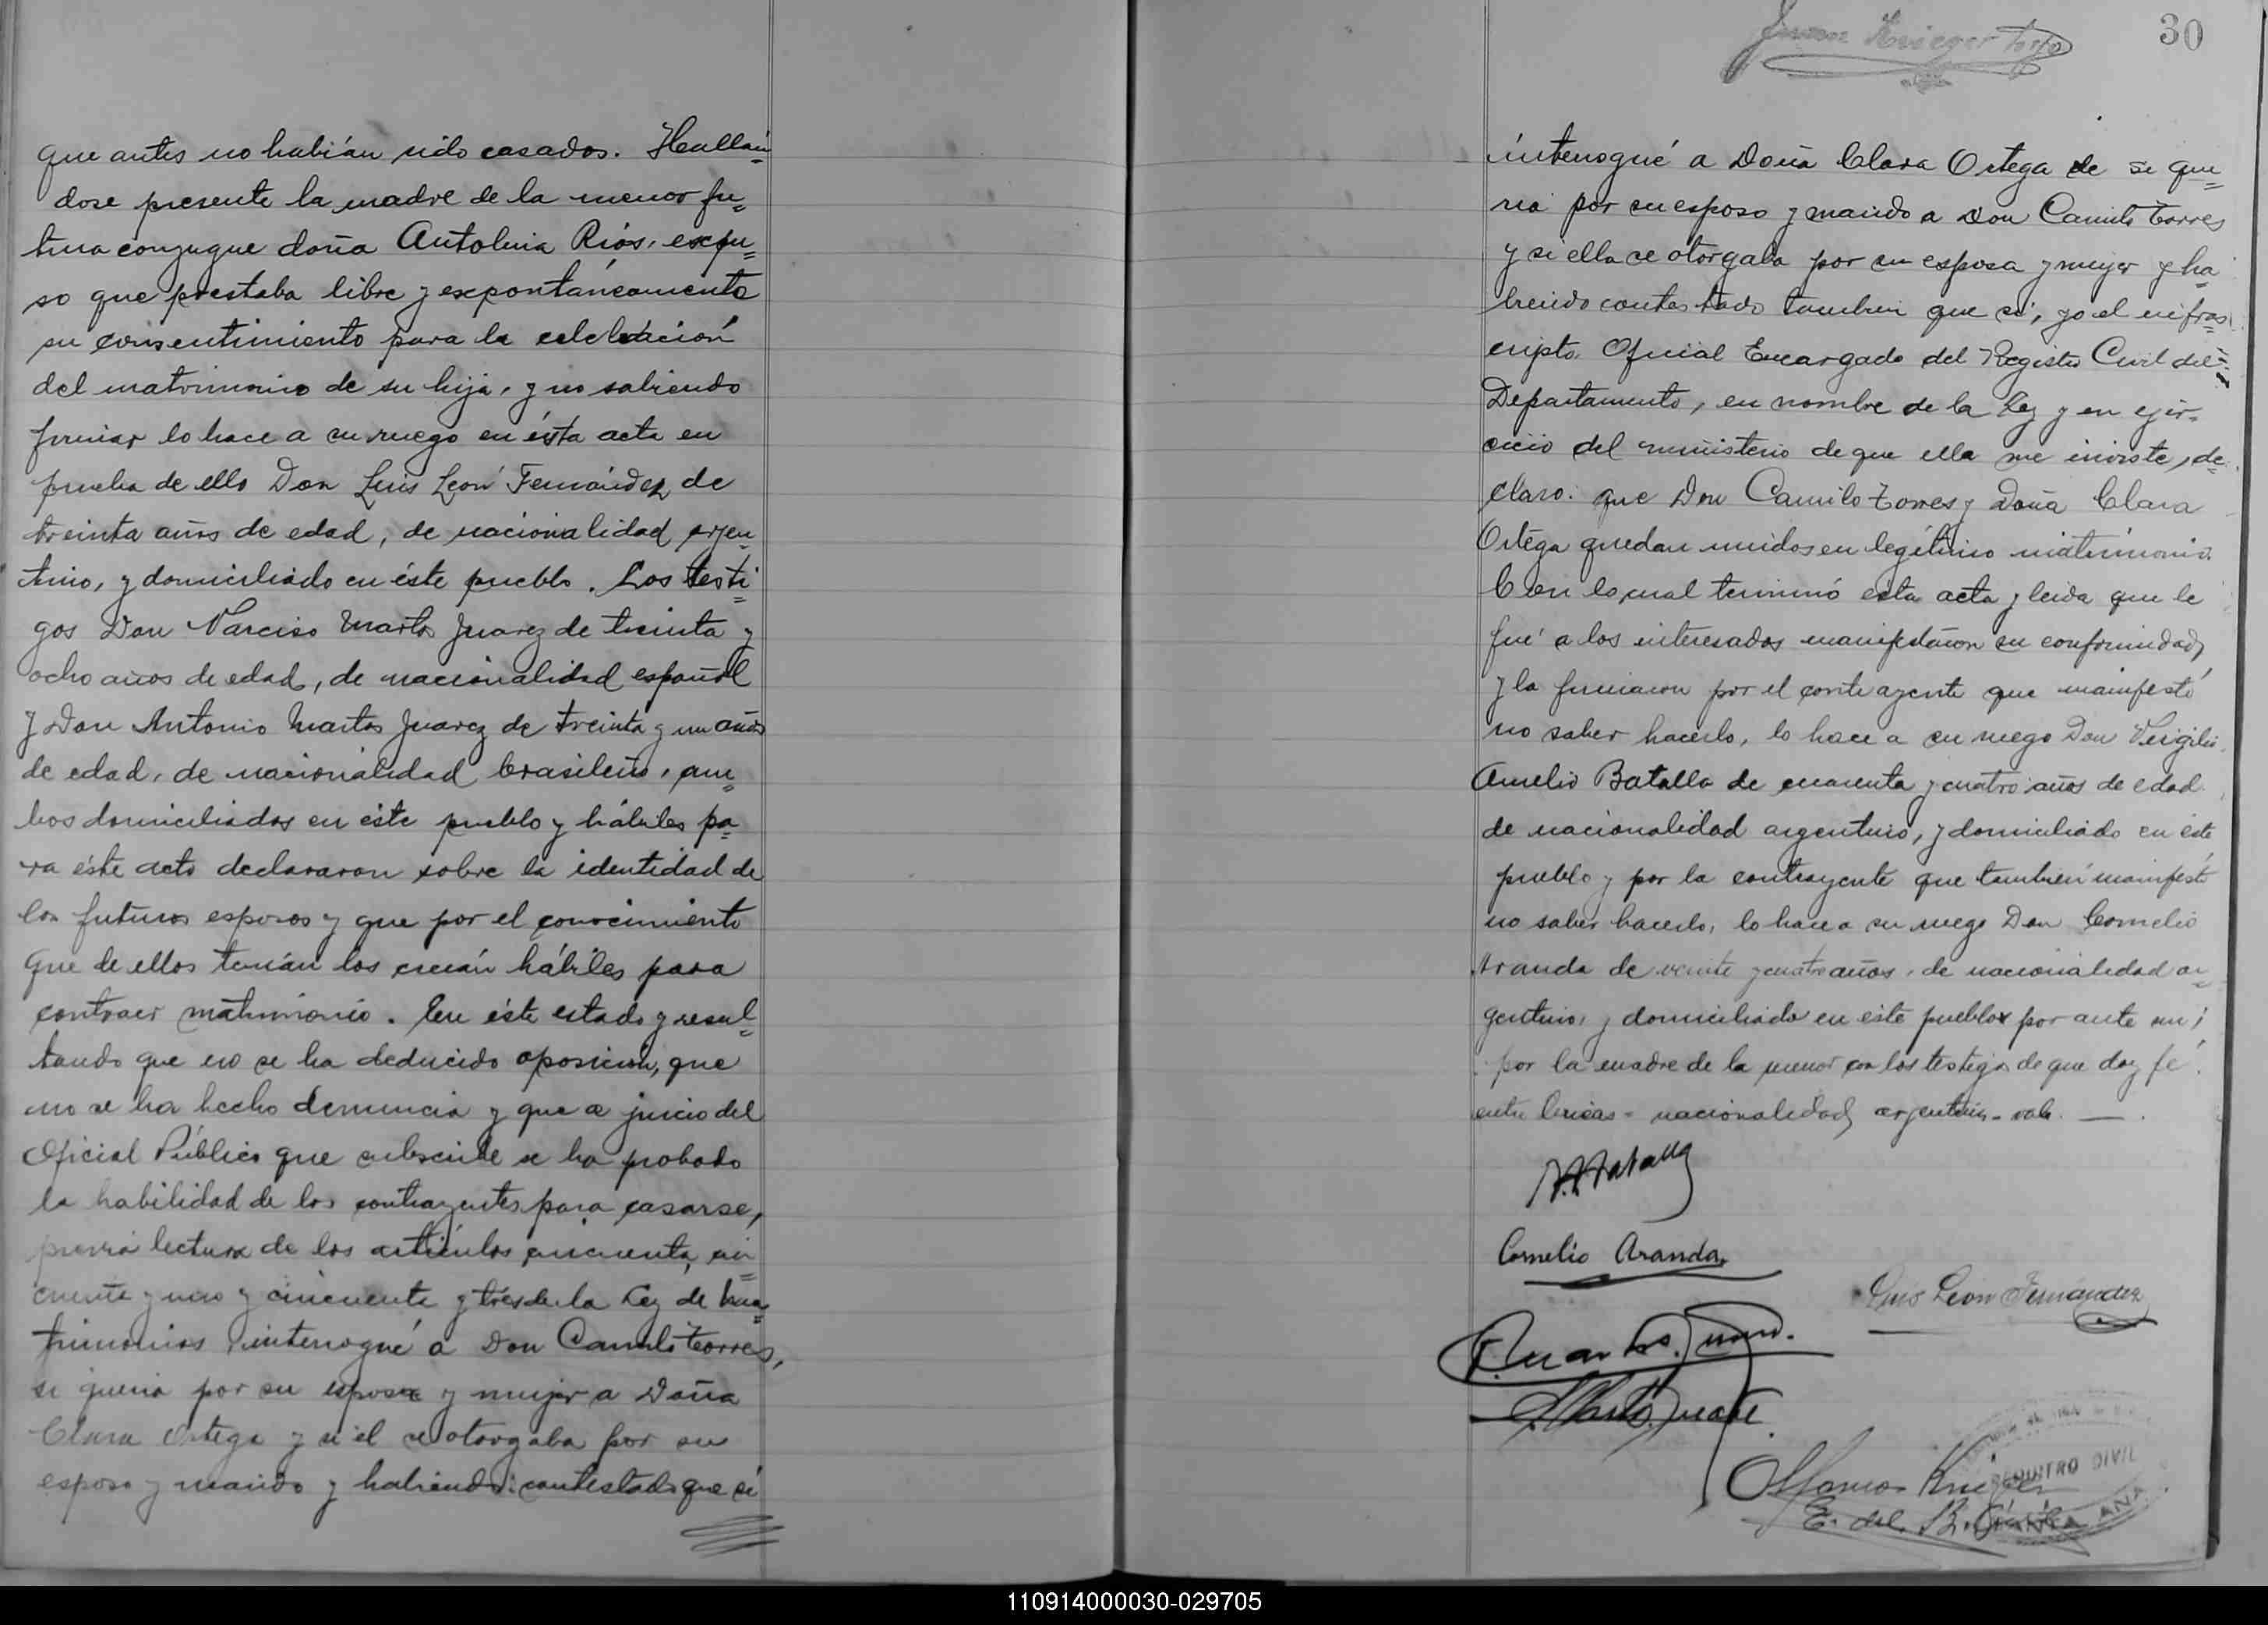 que antes no habían sido casados. Hallán=
dose presente la madre de la menor fu=
tura conyugue doña Antolina Ríos, expu=
so que prestaba libre y expontáneamente
su consentimiento para la celebración
del matrimonio de su hija, y no sabiendo
firmar lo hace a su ruego en ésta acta en
prueba de ello Don Luis León Fernández de
treinta años de edad, de nacionalidad arjen=
tino, y domiciliado en éste pueblo. Los testi=
gos Don Narciso Martos Juarez de treinta y
ocho años de edad, de nacionalidad español
y Don Antonio Martos Juarez de treinta y un años
de edad, de nacionalidad brasileño, am=
bos domiciliados en éste pueblo y hábiles pa=
ra éste acto declararon sobre la identidad de
los futuros esposos y que por el conocimiento
que de ellos tenían los creían hábiles para
contraer matrimonio. En éste estado y resul=
tando que no se ha deducido oposición, que
no se ha hecho denuncia y que a juicio del
Oficial Público que subscribe se ha probado
la habilidad de los contrayentes para casarse,
previa lectura de los artículos cincuenta, cin=
cuenta y uno y cincuenta y tres de la Ley de Ma=
trimonios interrogué a Don Camilo Torres,
si quería por su esposa y mujer a Doña
Clara Ortega y si él se otorgaba por su
esposo y marido y habiendo contestado que sí
30
interrogué a Doña Clara Ortega de si que=
ria por su esposo y marido a Don Camilo Torres
y si ella se otorgaba por su esposa y mujer y ha=
biendo contestado tambien que si, yo el infras=
cripto Oficial Encargado del Registro Civil del
Departamento, en nombre de la Ley y en ejer=
cicio del ministerio de que ella me inviste, de=
claro: que Don Camilo Torres y Doña Clara
Ortega quedan unidos en legítimo matrimonio.
Con lo cual terminó esta acta y leida que le
fué a los interesados manifestaron su conformidad,
y la firmaron por el contrayente que manifestó
no saber hacerlo, lo hace a su ruego Don Virgilio
Aurelio Batalla de cuarenta y cuatro años de edad
de nacionalidad argentino, y domiciliado en éste
pueblo y por la contrayente que también manifestó
no saber hacerlo, lo hace a su ruego Don Cornelio
Aranda de veinte y cuatro años, de nacionalidad ar=
gentino, y domiciliado en este pueblo por ante mi,
por la madre de la menor con los testigos de que doy fé.
entre lineas = nacionalidad argentino - vale. —
V.A. Batalla
Cornelio Aranda
Luis León Fernández
Alfonso Krieger
E. del R. Civil
REGISTRO CIVIL
110914000030-029705